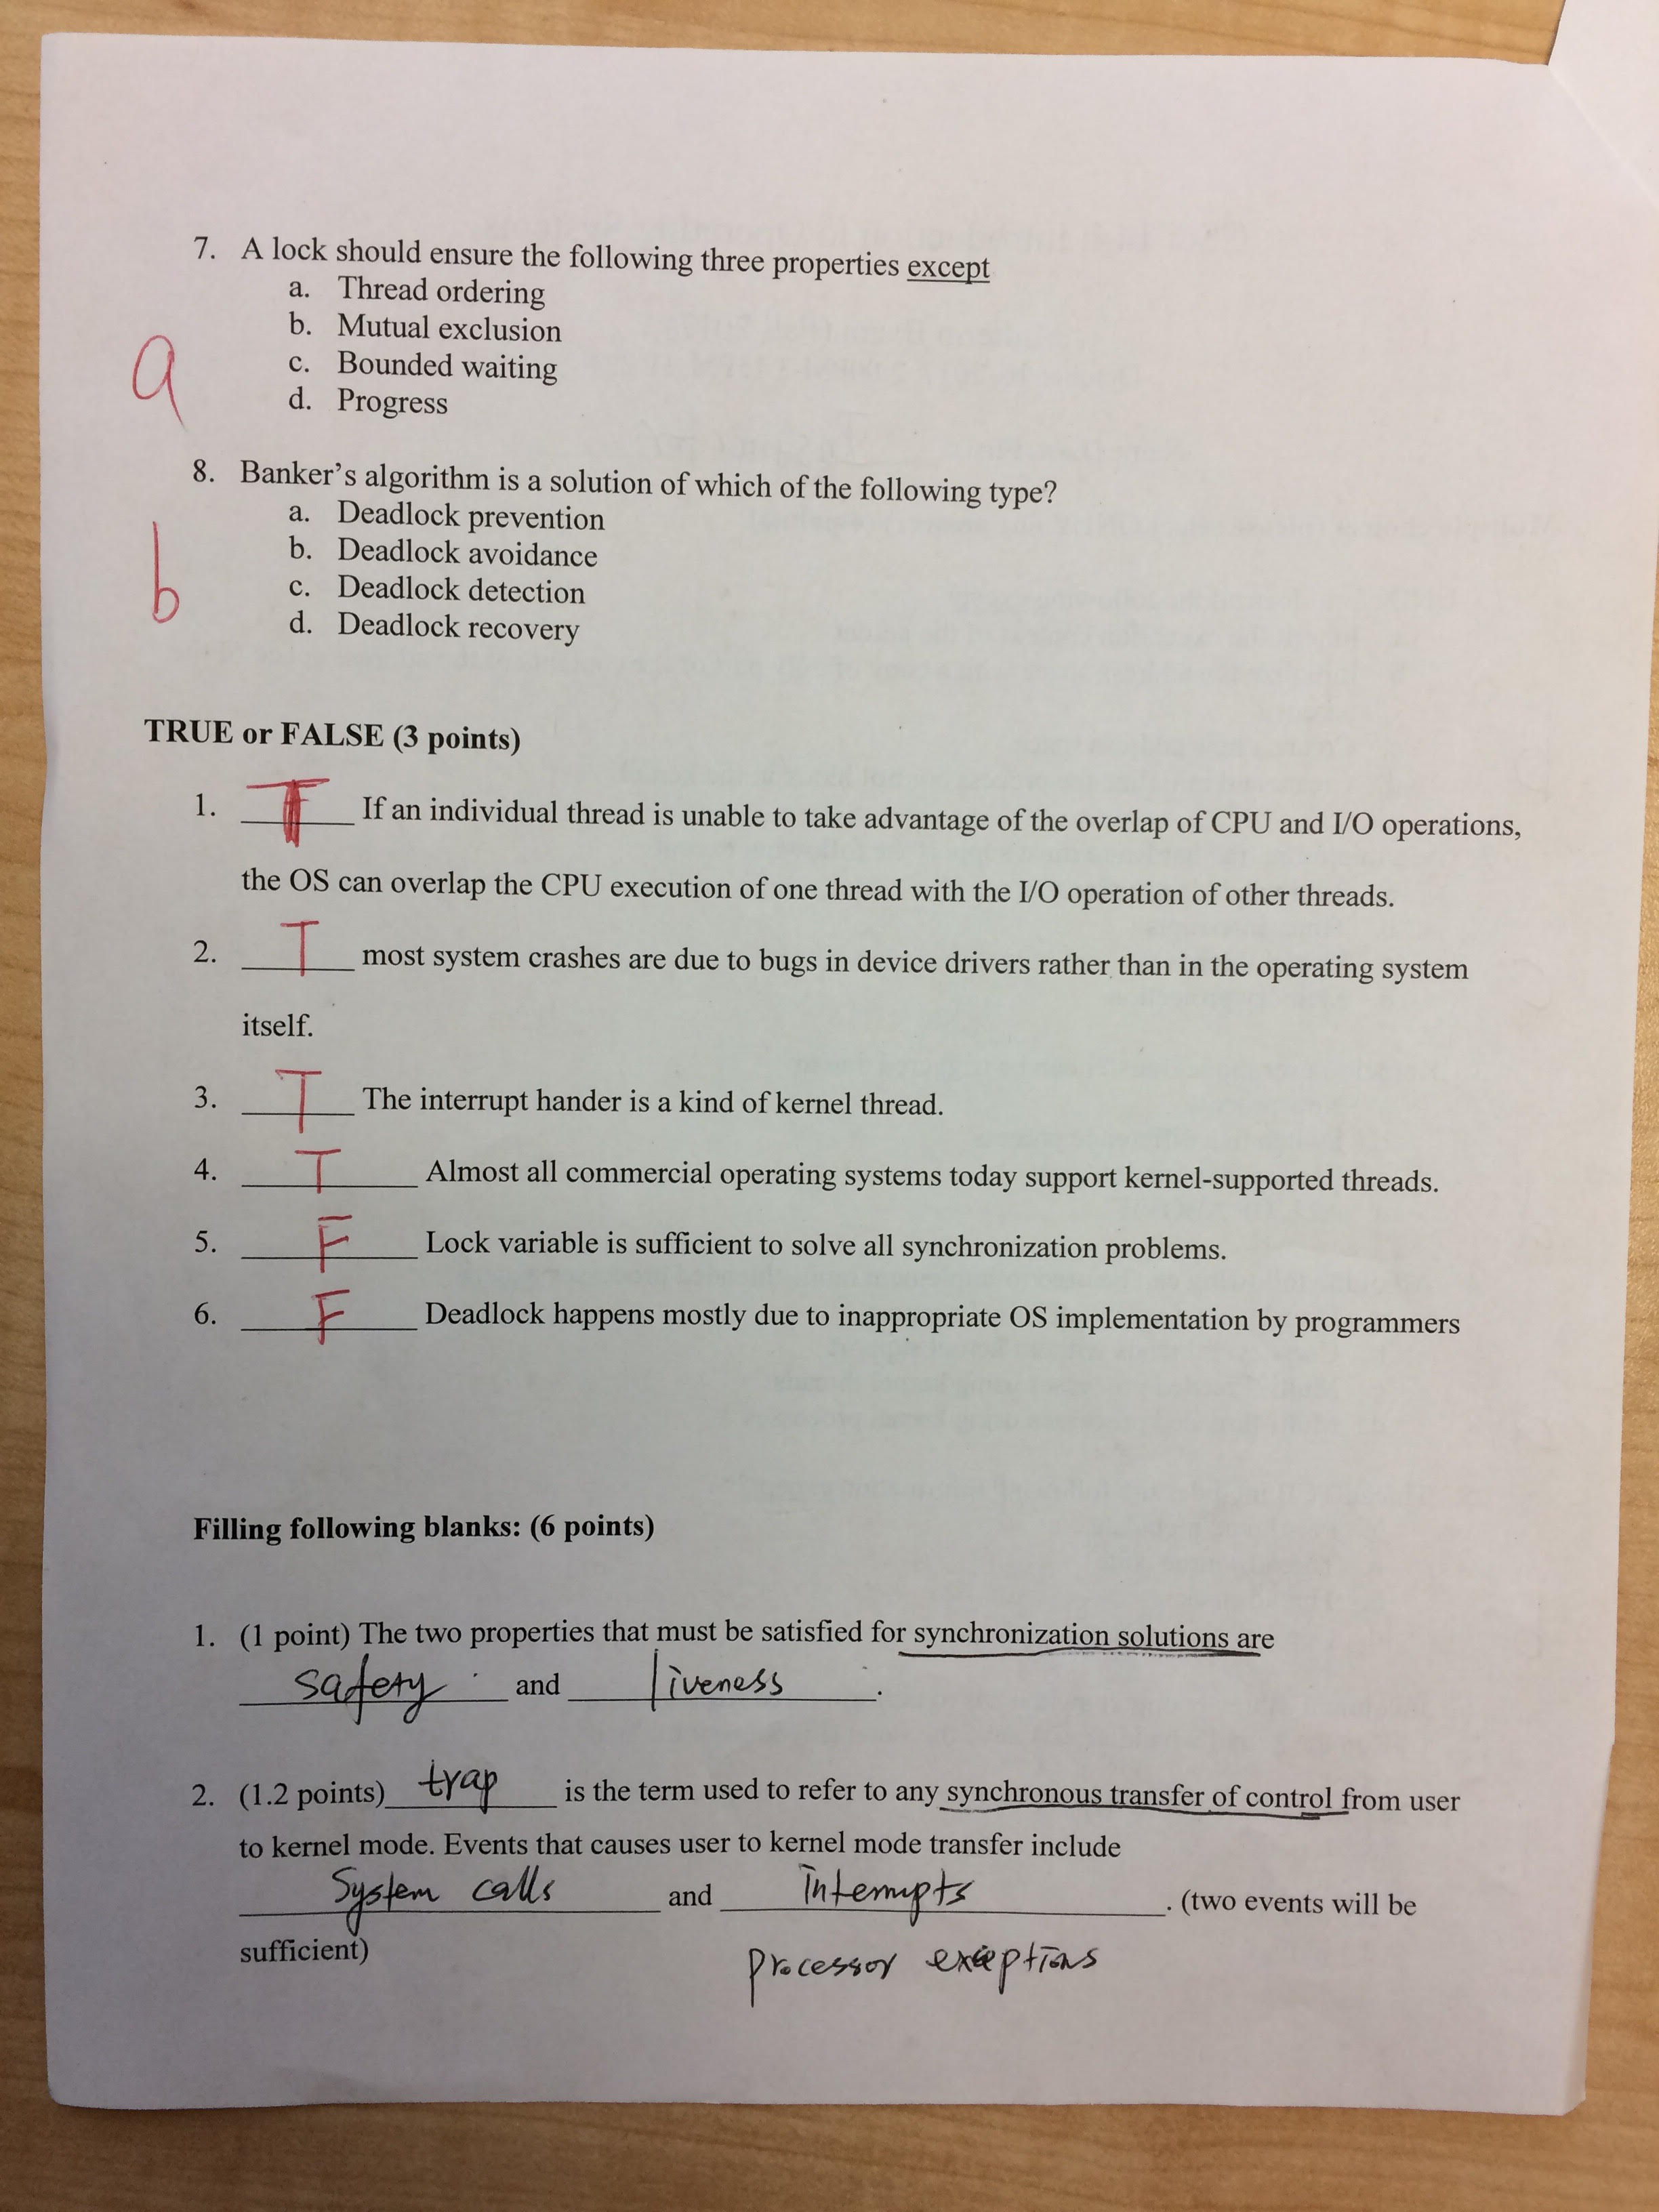 7. A lock should ensure the following three properties except
a. Thread ordering
b. Mutual exclusion
a
c. Bounded waiting
d. Progress
8. Banker's algorithm is a solution of which of the following type?
a. Deadlock prevention
b. Deadlock avoidance
b
c. Deadlock detection
d. Deadlock recovery
TRUE or FALSE (3 points)
1. T If an individual thread is unable to take advantage of the overlap of CPU and I/O operations,
the OS can overlap the CPU execution of one thread with the I/O operation of other threads.
2. T most system crashes are due to bugs in device drivers rather than in the operating system
itself.
3. T The interrupt hander is a kind of kernel thread.
4. T Almost all commercial operating systems today support kernel-supported threads.
5. F Lock variable is sufficient to solve all synchronization problems.
6. F Deadlock happens mostly due to inappropriate OS implementation by programmers
Filling following blanks: (6 points)
1. (1 point) The two properties that must be satisfied for synchronization solutions are
safety and liveness.
2. (1.2 points) trap is the term used to refer to any synchronous transfer of control from user
to kernel mode. Events that causes user to kernel mode transfer include
System calls and interrupts. (two events will be
sufficient)
processor exceptions